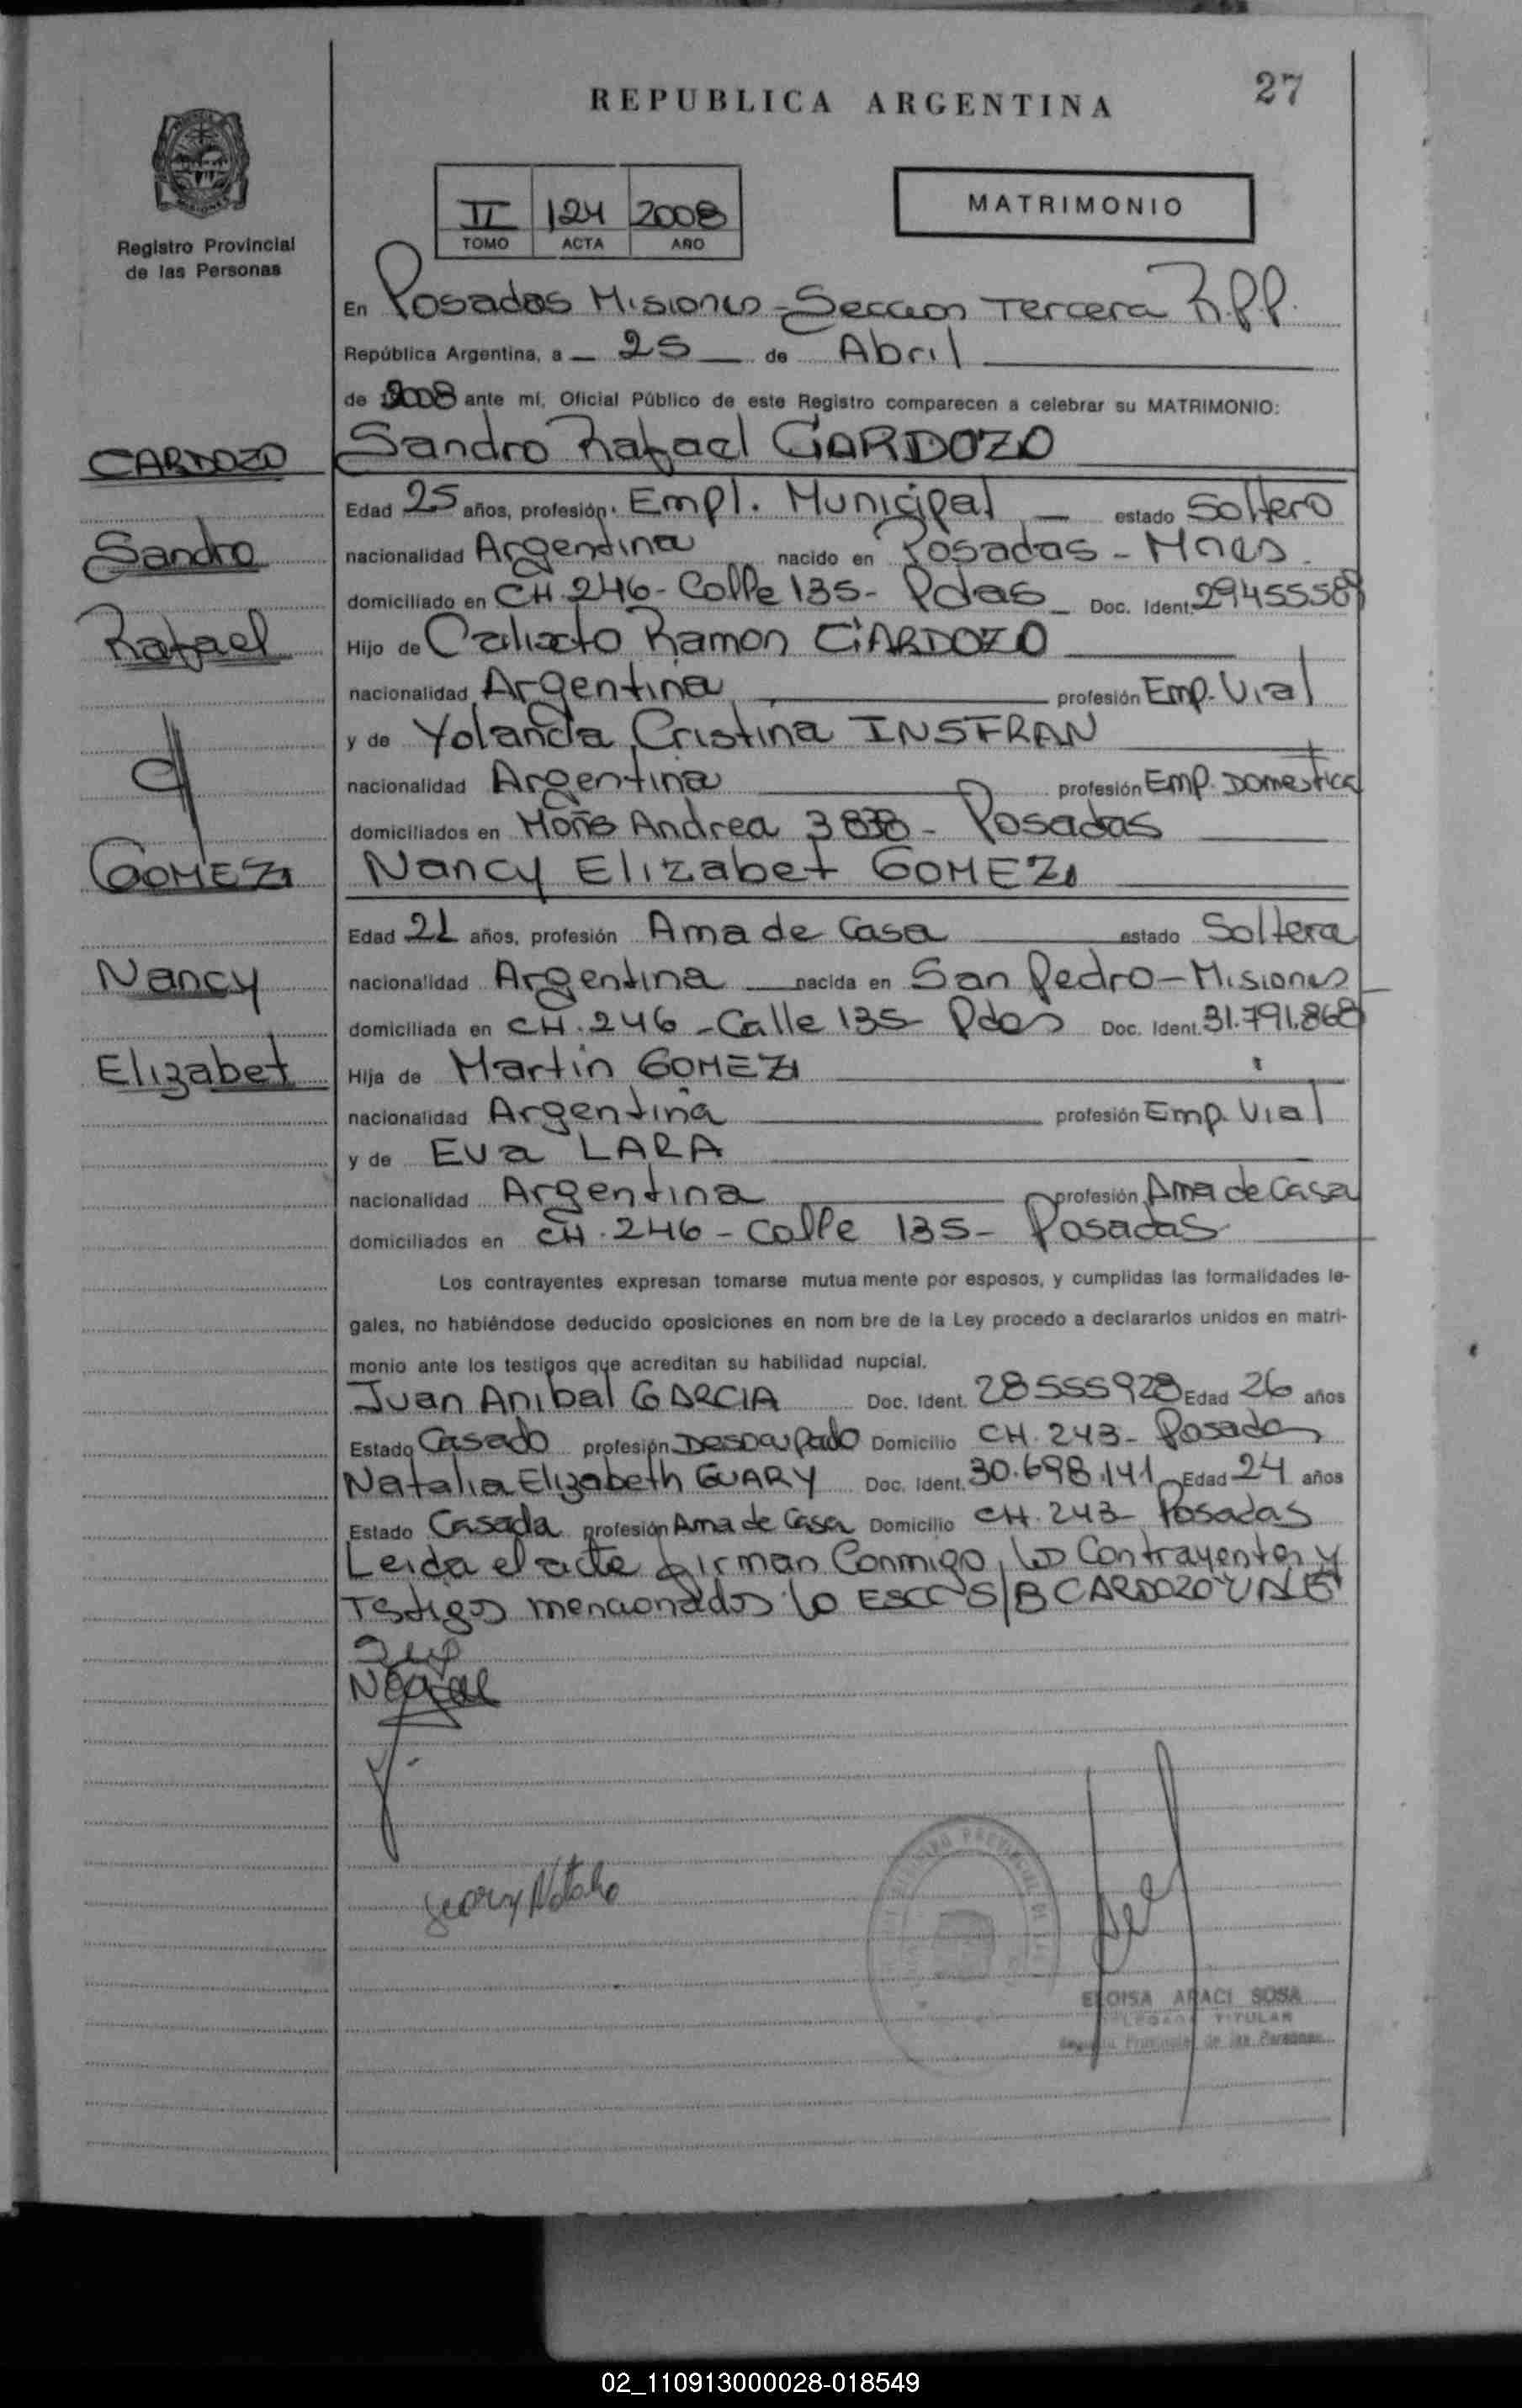 27
REPUBLICA ARGENTINA
II 124 2008
TOMO ACTA AÑO
MATRIMONIO
Registro Provincial
de las Personas
En Posadas Misiones - Seccion Tercera R.P.P.
República Argentina, a 25 de Abril
de 2008 ante mí, Oficial Público de este Registro comparecen a celebrar su MATRIMONIO:
CARDOZO
Sandro Rafael CARDOZO
Edad 25 años, profesión Empl. Municipal estado Soltero
Sandro
nacionalidad Argentina nacido en Posadas - Mnes
domiciliado en CH. 246 - Calle 135 - Pdas Doc. Ident.
Rafael
Hijo de Calixto Ramon CARDOZO
nacionalidad Argentina profesión Emp. Vial
y de Yolanda Cristina INSFRAN
nacionalidad Argentina profesión Emp. Domestica
domiciliados en Andrea Posadas
GOMEZ
Nancy Elizabet GOMEZ
Edad 21 años, profesión Ama de Casa estado Soltera
Nancy
nacionalidad Argentina nacida en San Pedro - Misiones
domiciliada en CH. 246 - Calle 135 Pdas Doc. Ident. 31.791.868
Elizabet
Hija de Martin GOMEZ
nacionalidad Argentina profesión Emp. Vial
y de Eva LARA
nacionalidad Argentina profesión Ama de Casa
domiciliados en CH. 246 - Calle 135 - Posadas
Los contrayentes expresan tomarse mutua mente por esposos, y cumplidas las formalidades le-
gales, no habiéndose deducido oposiciones en nom bre de la Ley procedo a declararlos unidos en matri-
monio ante los testigos que acreditan su habilidad nupcial.
Juan Anibal GARCIA Doc. Ident. 28555928 Edad 26 años
Estado Casado profesión Desocupado Domicilio CH. 243 - Posadas
Natalia Elizabeth GUARY Doc. Ident. 30.698.141 Edad 24 años
Estado Casada profesión Ama de Casa Domicilio CH. 243 - Posadas
Leida el acta firman Conmigo los Contrayentes y
Testigos mencionados lo S/B CARDOZO VALE
Natalia
ELOISA ARACI SOSA
DELEGADA TITULAR
Registro Provincial de las Personas
02_110913000028-018549